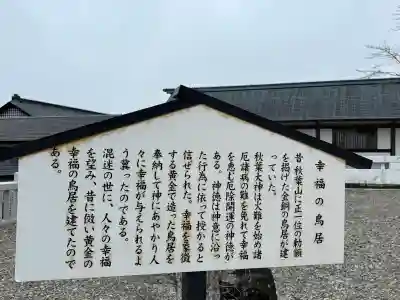 幸福の鳥居
昔秋葉山に正一位の勅額
を掲げた金銅の鳥居が建
っていた。
秋葉大神は火難を始め諸
厄諸病の難を免れて幸福
を恵む厄除開運の神徳が
ある。神徳は神意に沿っ
た行為に依って授かると
信ぜられた。幸福を象徴
する黄金で造った鳥居を
奉納して神にあやかり人
々に幸福が与えられるよ
う冀ったのである。
混迷の世に、人々の幸福
を望み、昔に倣い黄金の
幸福の鳥居を建てたので
ある。